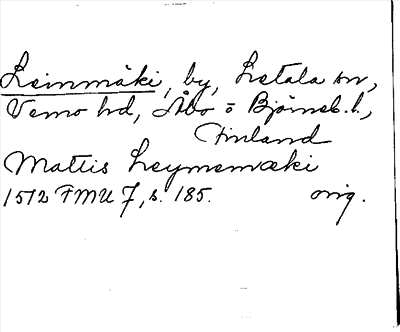 Leinmäki, by, Letala sn,
Vemo hd, Åbo o Björneb. l.,
Finland
Mattis Leynemæki
1512 FMU 7, s. 185. orig.